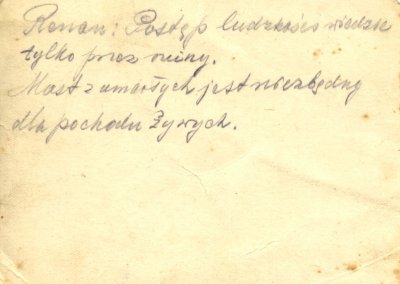 Renan: Postęp ludzkości wiedzie
tylko przez ruiny.
Most z umarłych jest niezbędny
dla pochodu żywych.